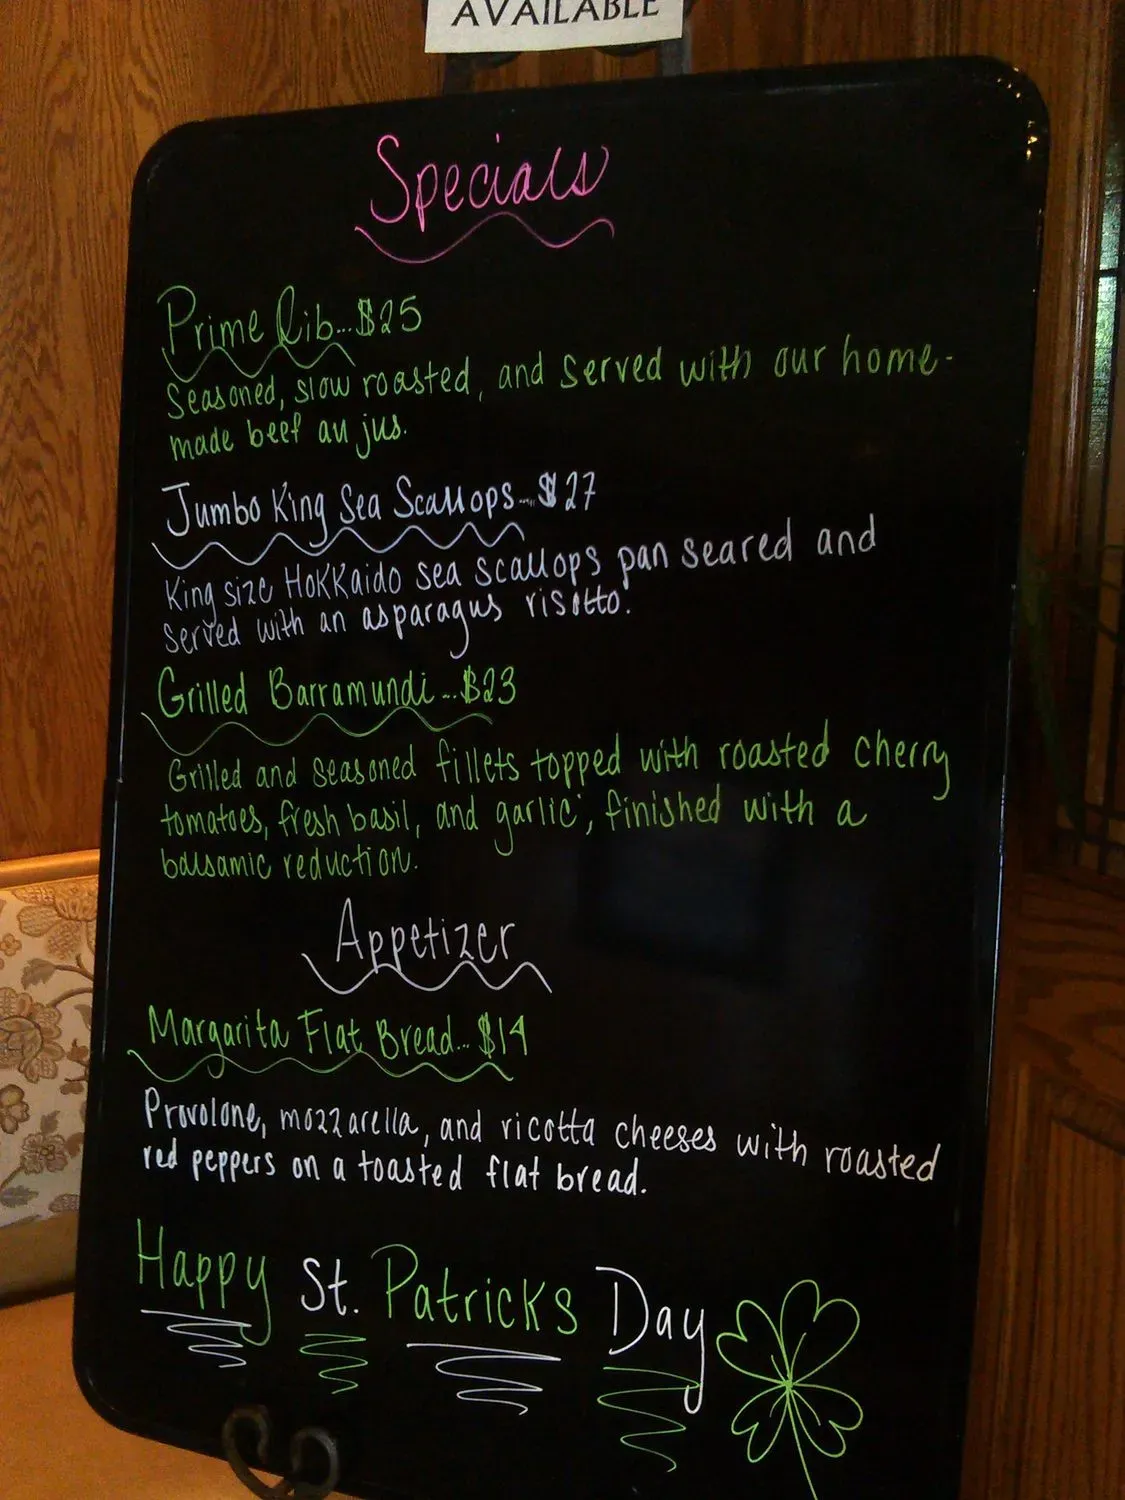 AVAILABLE
Specials
Prime Rib...$25
Seasoned, slow roasted, and served with our home-
made beef au jus.
Jumbo King Sea Scallops...$27
King size Hokkaido sea scallops pan seared and
served with an asparagus risotto.
Grilled Barramundi...$23
Grilled and seasoned fillets topped with roasted cherry
tomatoes, fresh basil, and garlic, finished with a
balsamic reduction.
Appetizer
Margarita Flat Bread...$14
Provolone, mozzarella, and ricotta cheeses with roasted
red peppers on a toasted flat bread.
Happy St. Patricks Day